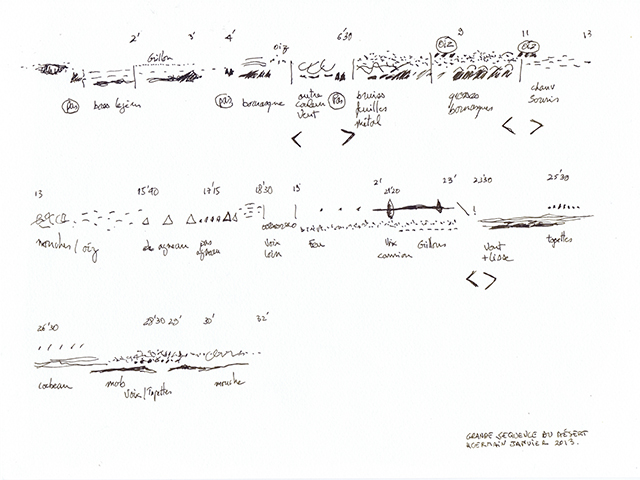 2' 3' 4' 6'30 9 11 13
Grillon oiz oiz oiz
pas bass legère pas bourrasque outre vent pas bruits feuilles métal grosses bourrasques chauve souris
< > < >
13 15'40 17'15 18'30 19' 21' 21'20 23' 23'30 25'30
mouches / oiz agneau pas agneau Voix loin Eau Voix camion Grillons Vent + lisse tapettes
< >
26'30 28'30 29' 30' 32'
corbeau mob Voix/Tapettes mouche
GRANDE SEQUENCE DU DÉSERT
KGERMAIN JANVIER 2013.